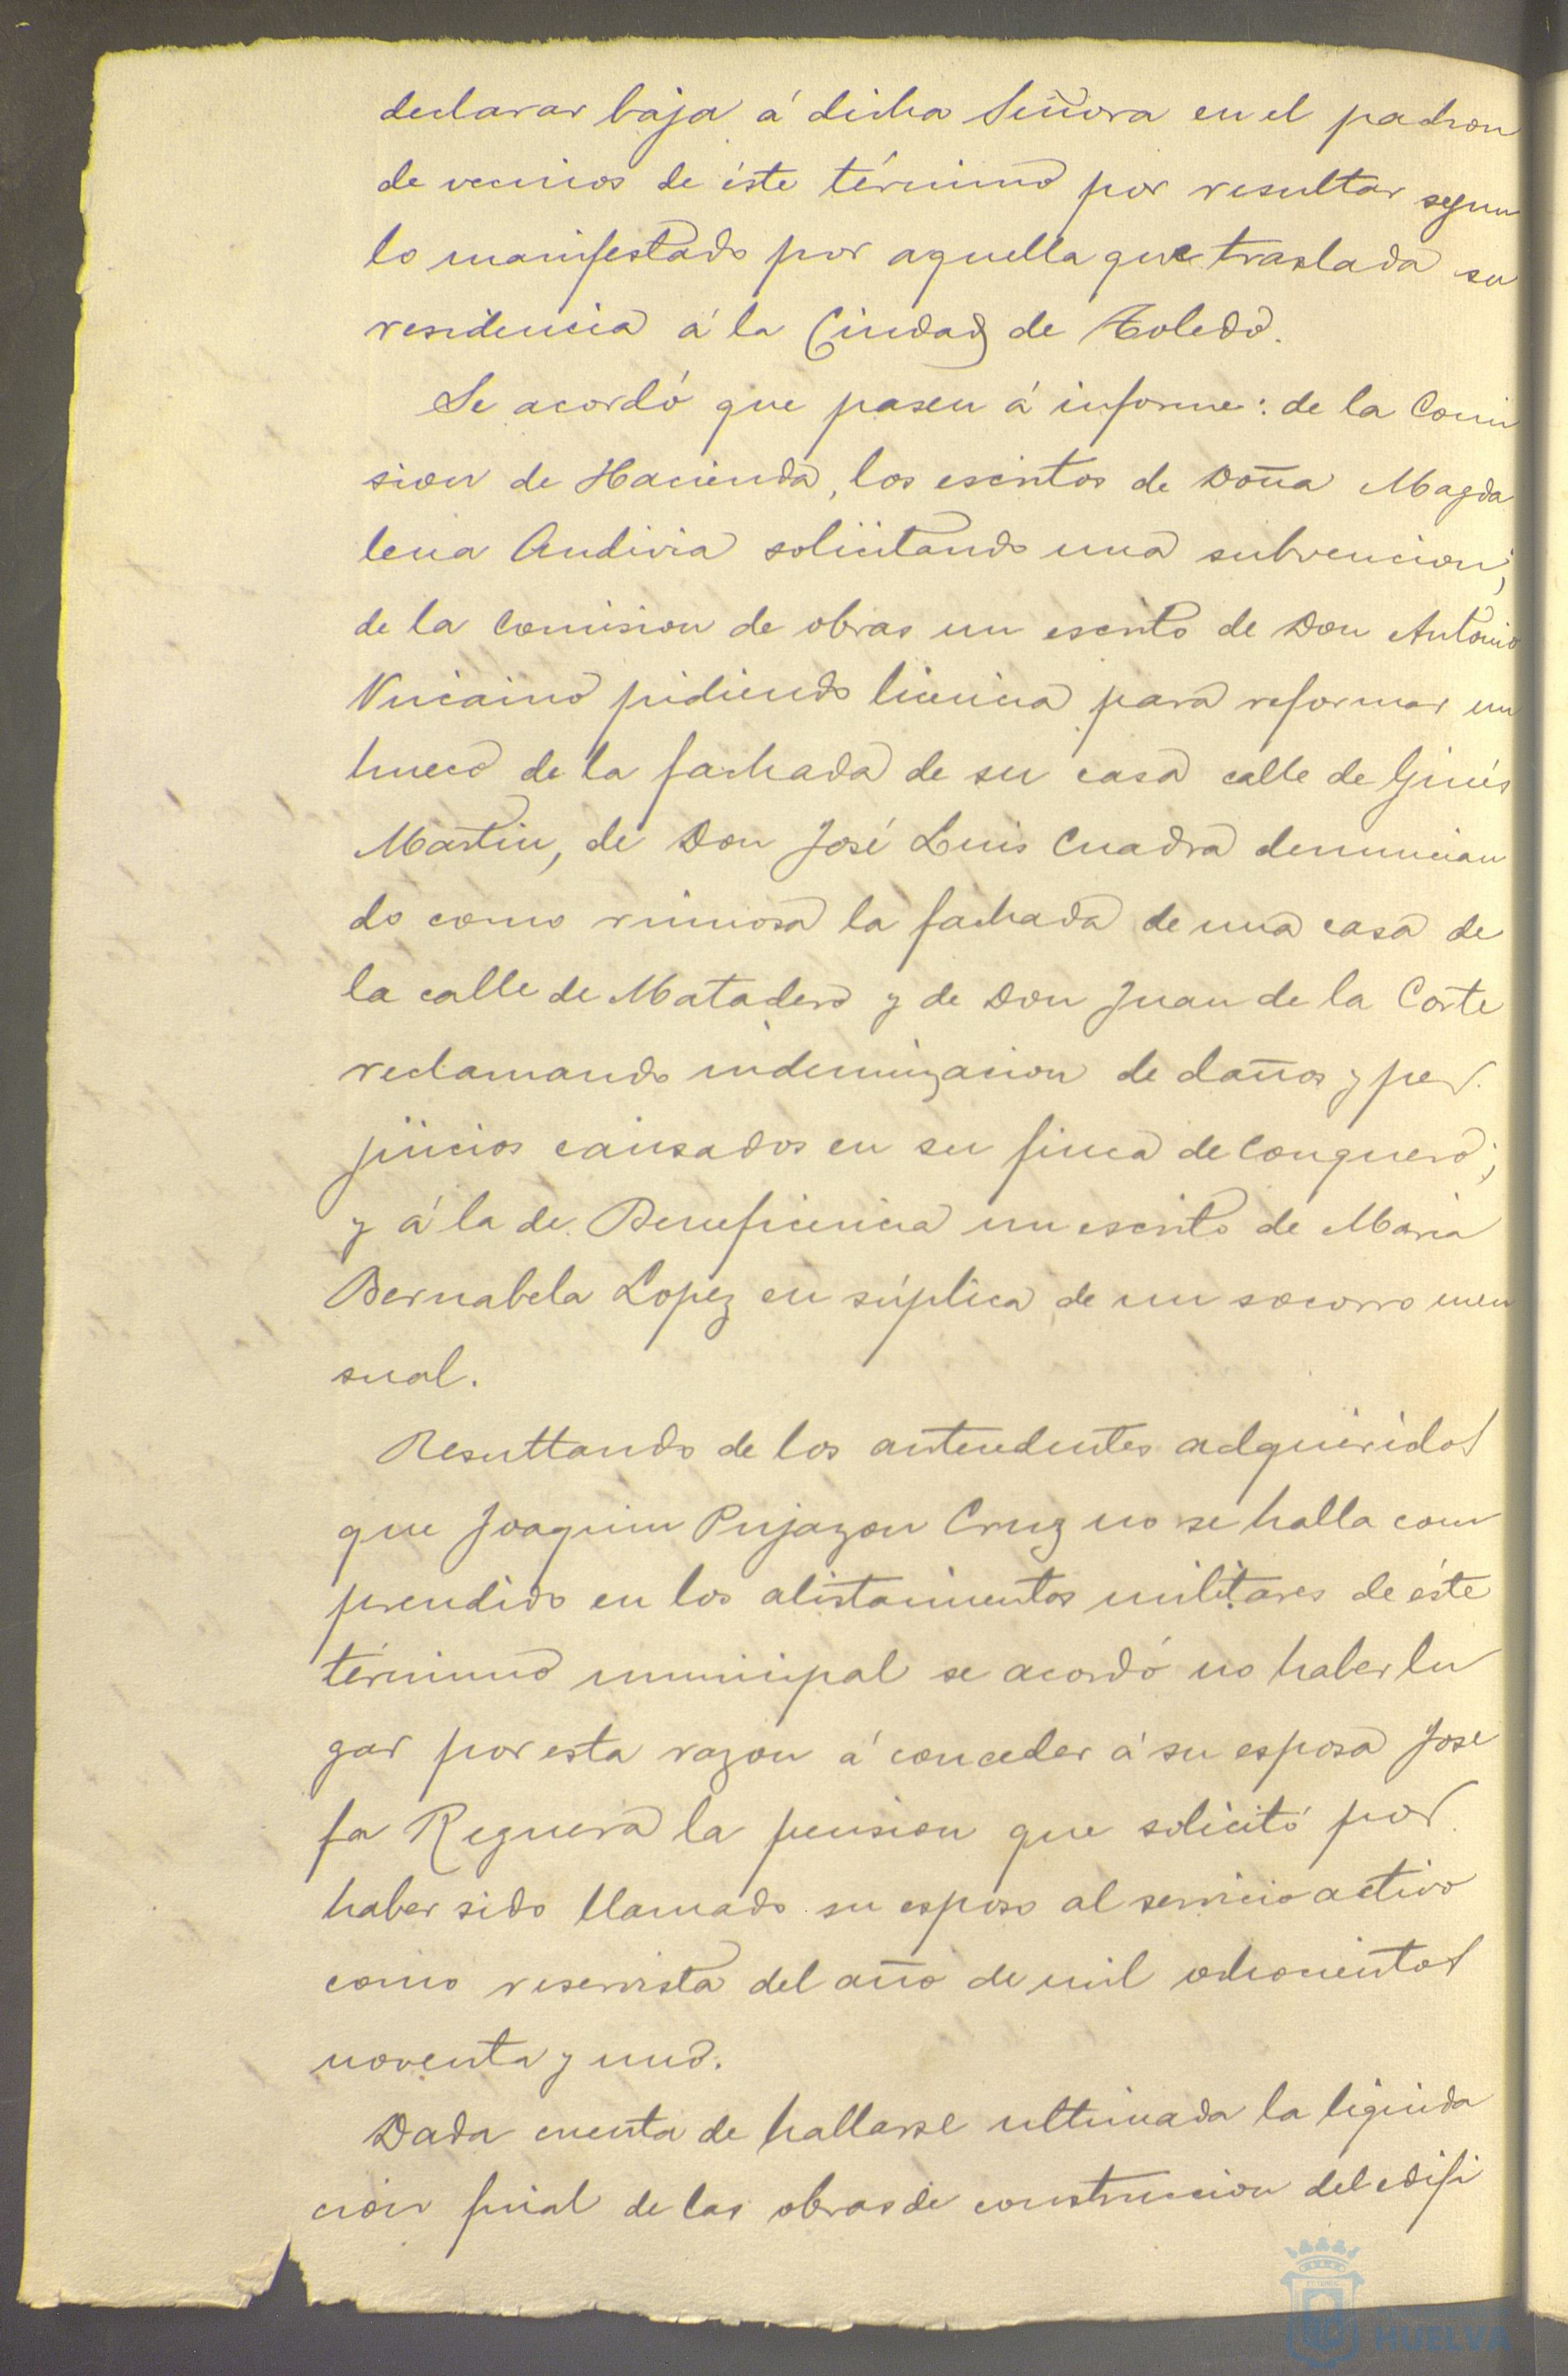 declarar baja á dicha Señora en el padron
de vecinos de éste término por resultar segun
lo manifestado por aquella que traslada su
residencia á la Ciudad de Toledo.
Se acordó que pasen á informe: de la Comi
sion de Hacienda, los escritos de Doña Magda
lena Andivia solicitando una subvencion;
de la Comision de obras un escrito de Don Antonio
Vizcaino pidiendo licencia para reformar un
hueco de la fachada de su casa calle de Ginés
Martin, de Don José Luis Cuadra denuncian
do como ruinosa la fachada de una casa de
la calle de Matadero y de Don Juan de la Corte
reclamando indemnizacion de daños y per
juicios causados en su finca de Conquero;
y á la de Beneficencia un escrito de Maria
Bernabela Lopez en súplica de un socorro men
sual.
Resultando de los antecedentes adquiridos
que Joaquin Pujazon Cruz no se halla com
prendido en los alistamientos militares de éste
término municipal se acordó no haber lu
gar por esta razon á conceder á su esposa Jose
fa Reguera la pension que solicitó por
haber sido llamado su esposo al servicio activo
como reservista del año de mil ochocientos
noventa y uno.
Dada cuenta de hallarse ultimada la liquida
ción final de las obras de construccion del edifi
HUELVA